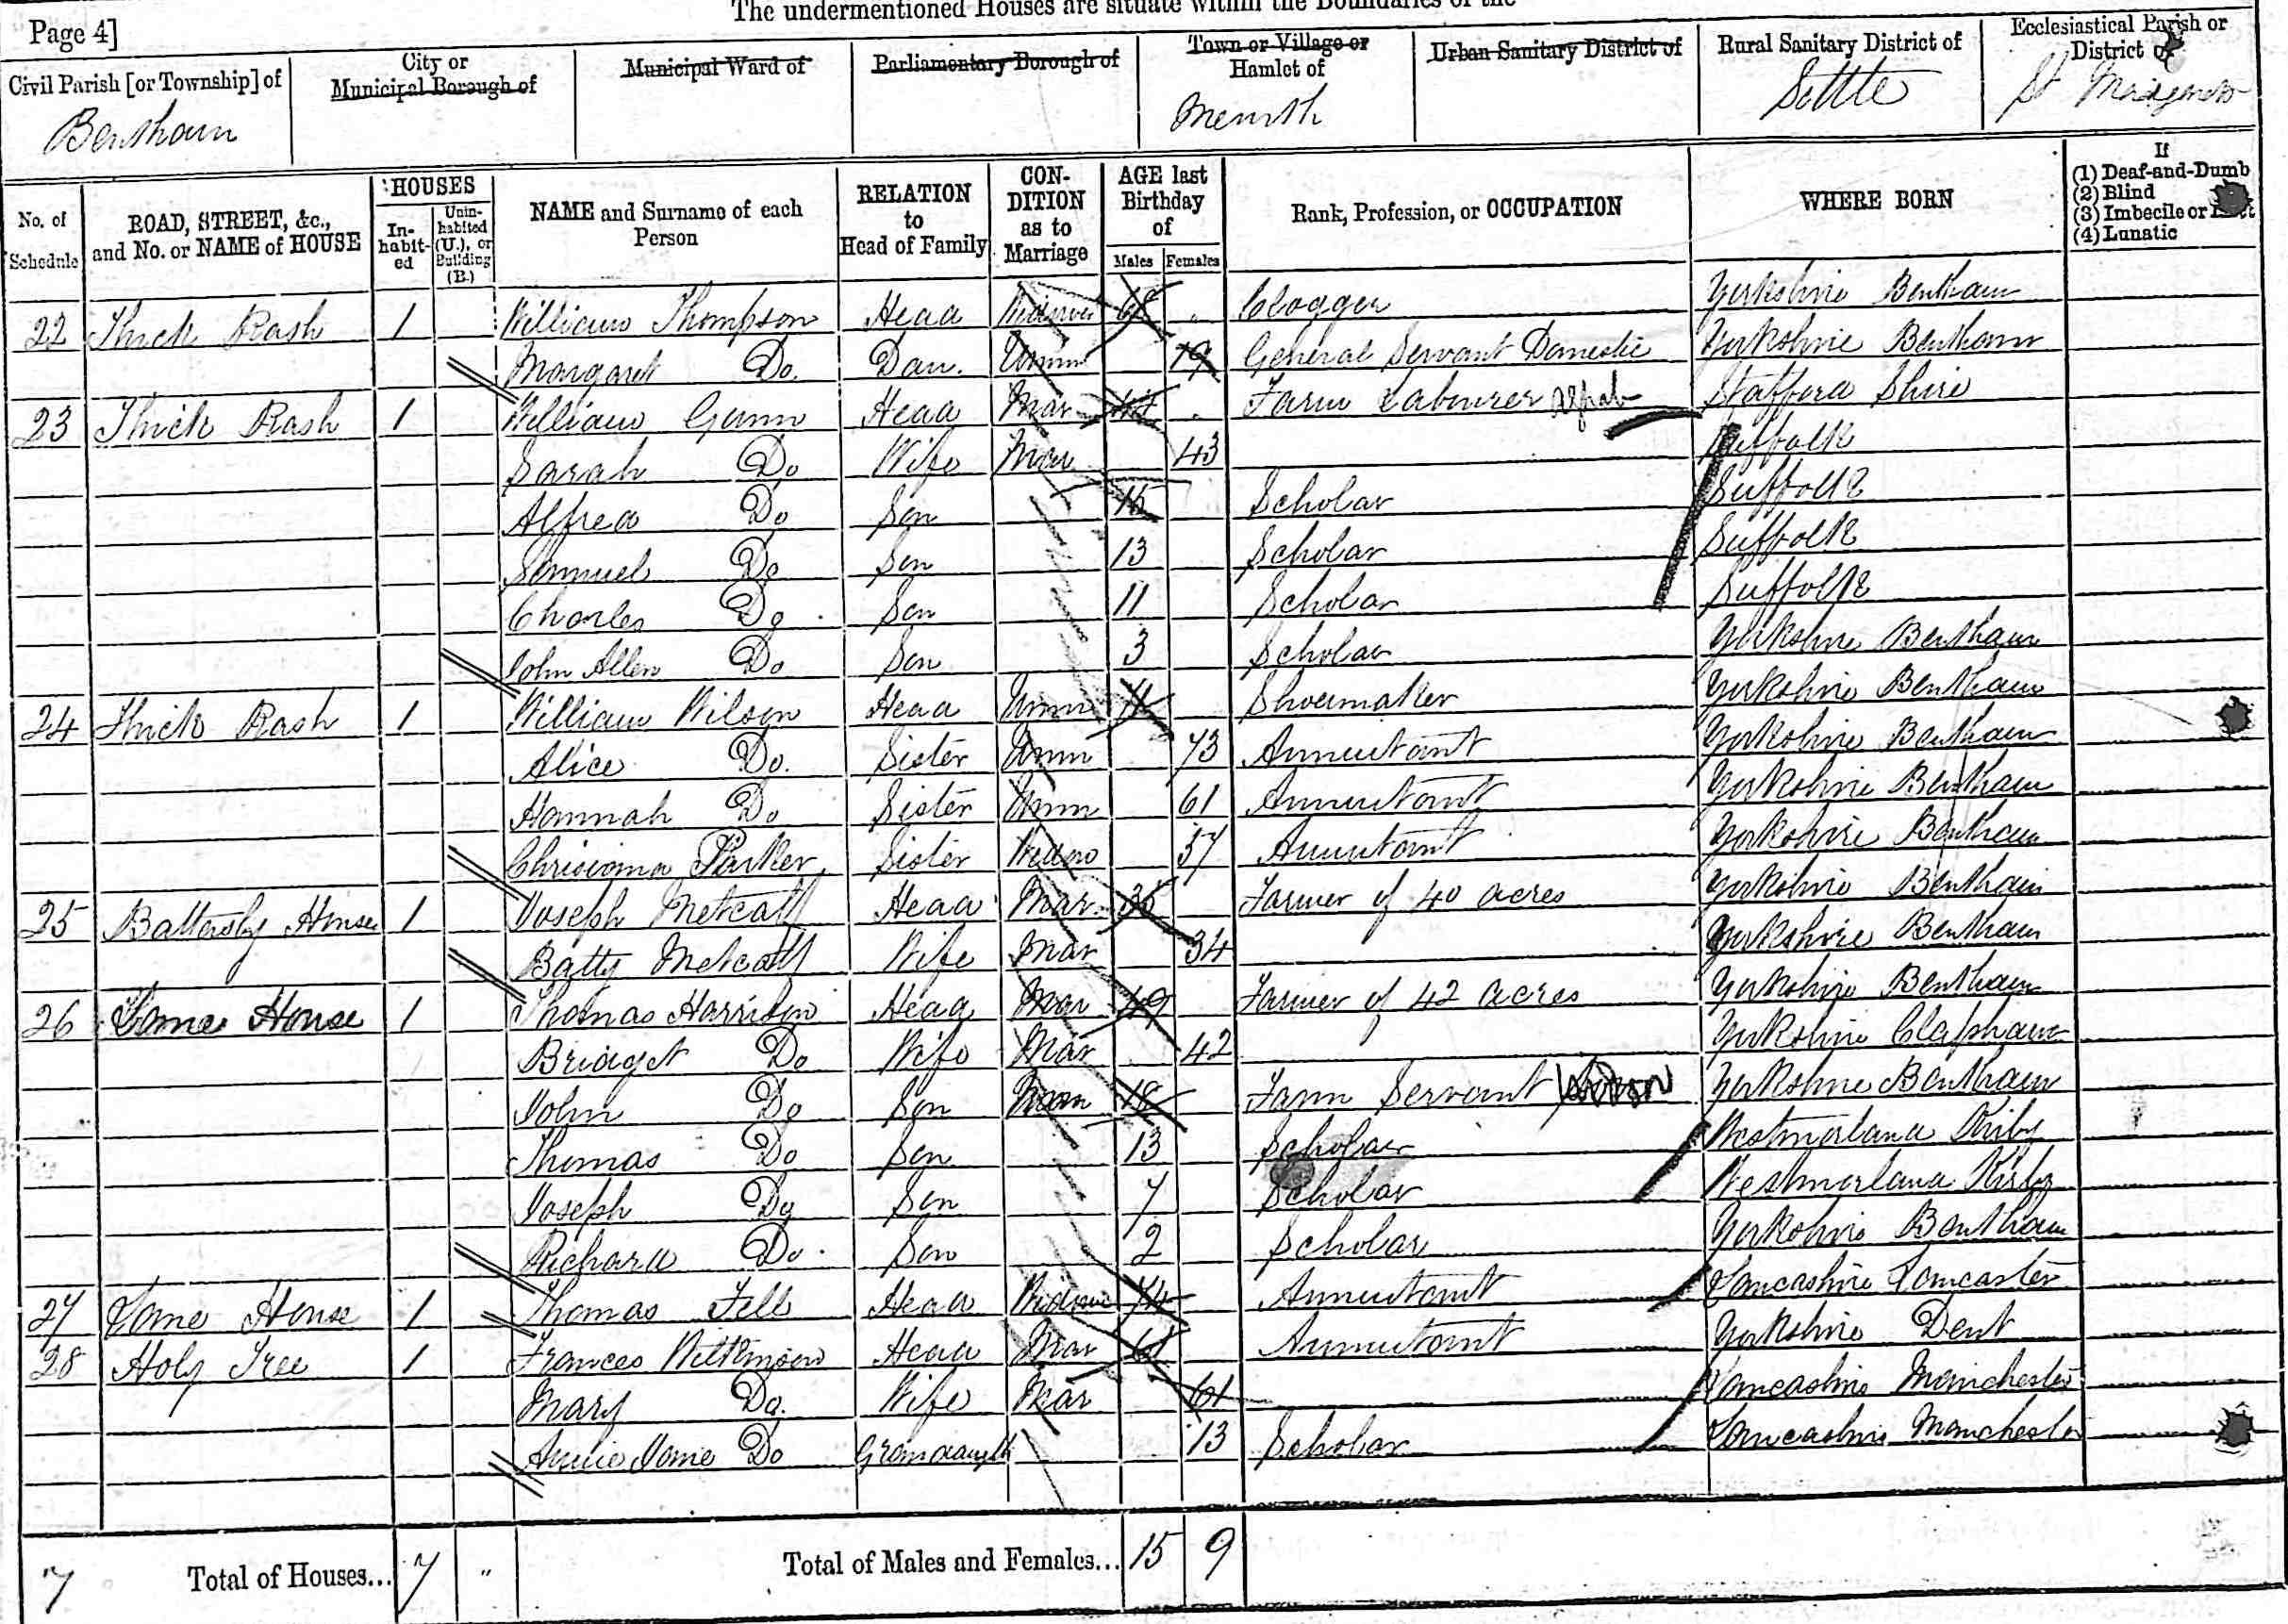 The undermentioned Houses are situate within the Boundaries of the
Page 4]
Civil Parish [or Township] of
Bentham
City or Municipal Borough of
Municipal Ward of
Parliamentary Borough of
Town or Village or Hamlet of
Urban Sanitary District of
Rural Sanitary District of
Settle
Ecclesiastical Parish or District of
St Margarets
No. of Schedule
ROAD, STREET, &c., and No. or NAME of HOUSE
HOUSES
In-habit-ed
Unin-habited (U.), or Building (B.)
NAME and Surname of each Person
RELATION to Head of Family
CON-DITION as to Marriage
AGE last Birthday of
Males Females
Rank, Profession, or OCCUPATION
WHERE BORN
If
(1) Deaf-and-Dumb
(2) Blind
(3) Imbecile or Idiot
(4) Lunatic
22 Thick Rash 1 William Thompson Head Widower Clogger Yorkshire Bentham
Margaret Do. Dau. Unm 19 General Servant Domestic Yorkshire Bentham
23 Thick Rash 1 William Gunn Head Mar Farm Labourer Stafford Shire
Sarah Do Wife Mar 43 Suffolk
Alfred Do Son 15 Scholar Suffolk
Samuel Do Son 13 Scholar Suffolk
Charles Do Son 11 Scholar Suffolk
John Allen Do Son 3 Scholar Yorkshire Bentham
24 Thick Rash 1 William Wilson Head Unm Shoemaker Yorkshire Bentham
Alice Do. Sister Unm 73 Annuitant Yorkshire Bentham
Hannah Do Sister Unm 61 Annuitant Yorkshire Bentham
Parker Sister Widow 57 Annuitant Yorkshire Bentham
25 Battersby House 1 Joseph Metcalf Head Mar Farmer of 40 acres Yorkshire Bentham
Batty Metcalf Wife Mar 34 Yorkshire Bentham
26 Lane House 1 Thomas Harrison Head Mar 49 Farmer of 42 acres Yorkshire Bentham
Bridget Do Wife Mar 42 Yorkshire Clapham
John Do Son 18 Farm Servant Yorkshire Bentham
Thomas Do Son 13 Scholar Westmorland Kirby
Joseph Do Son 7 Scholar Westmorland Kirby
Richard Do Son 2 Scholar Yorkshire Bentham
27 Lane House 1 Thomas Fell Head Widower 74 Annuitant Lancashire Lancaster
28 Holy Tree 1 Frances Wilkinson Head Mar 61 Annuitant Yorkshire Dent
Mary Do. Wife Mar 61 Lancashire Manchester
Annie Jane Do Grandaugh 13 Scholar Lancashire Manchester
7 Total of Houses... 7 " Total of Males and Females... 15 9